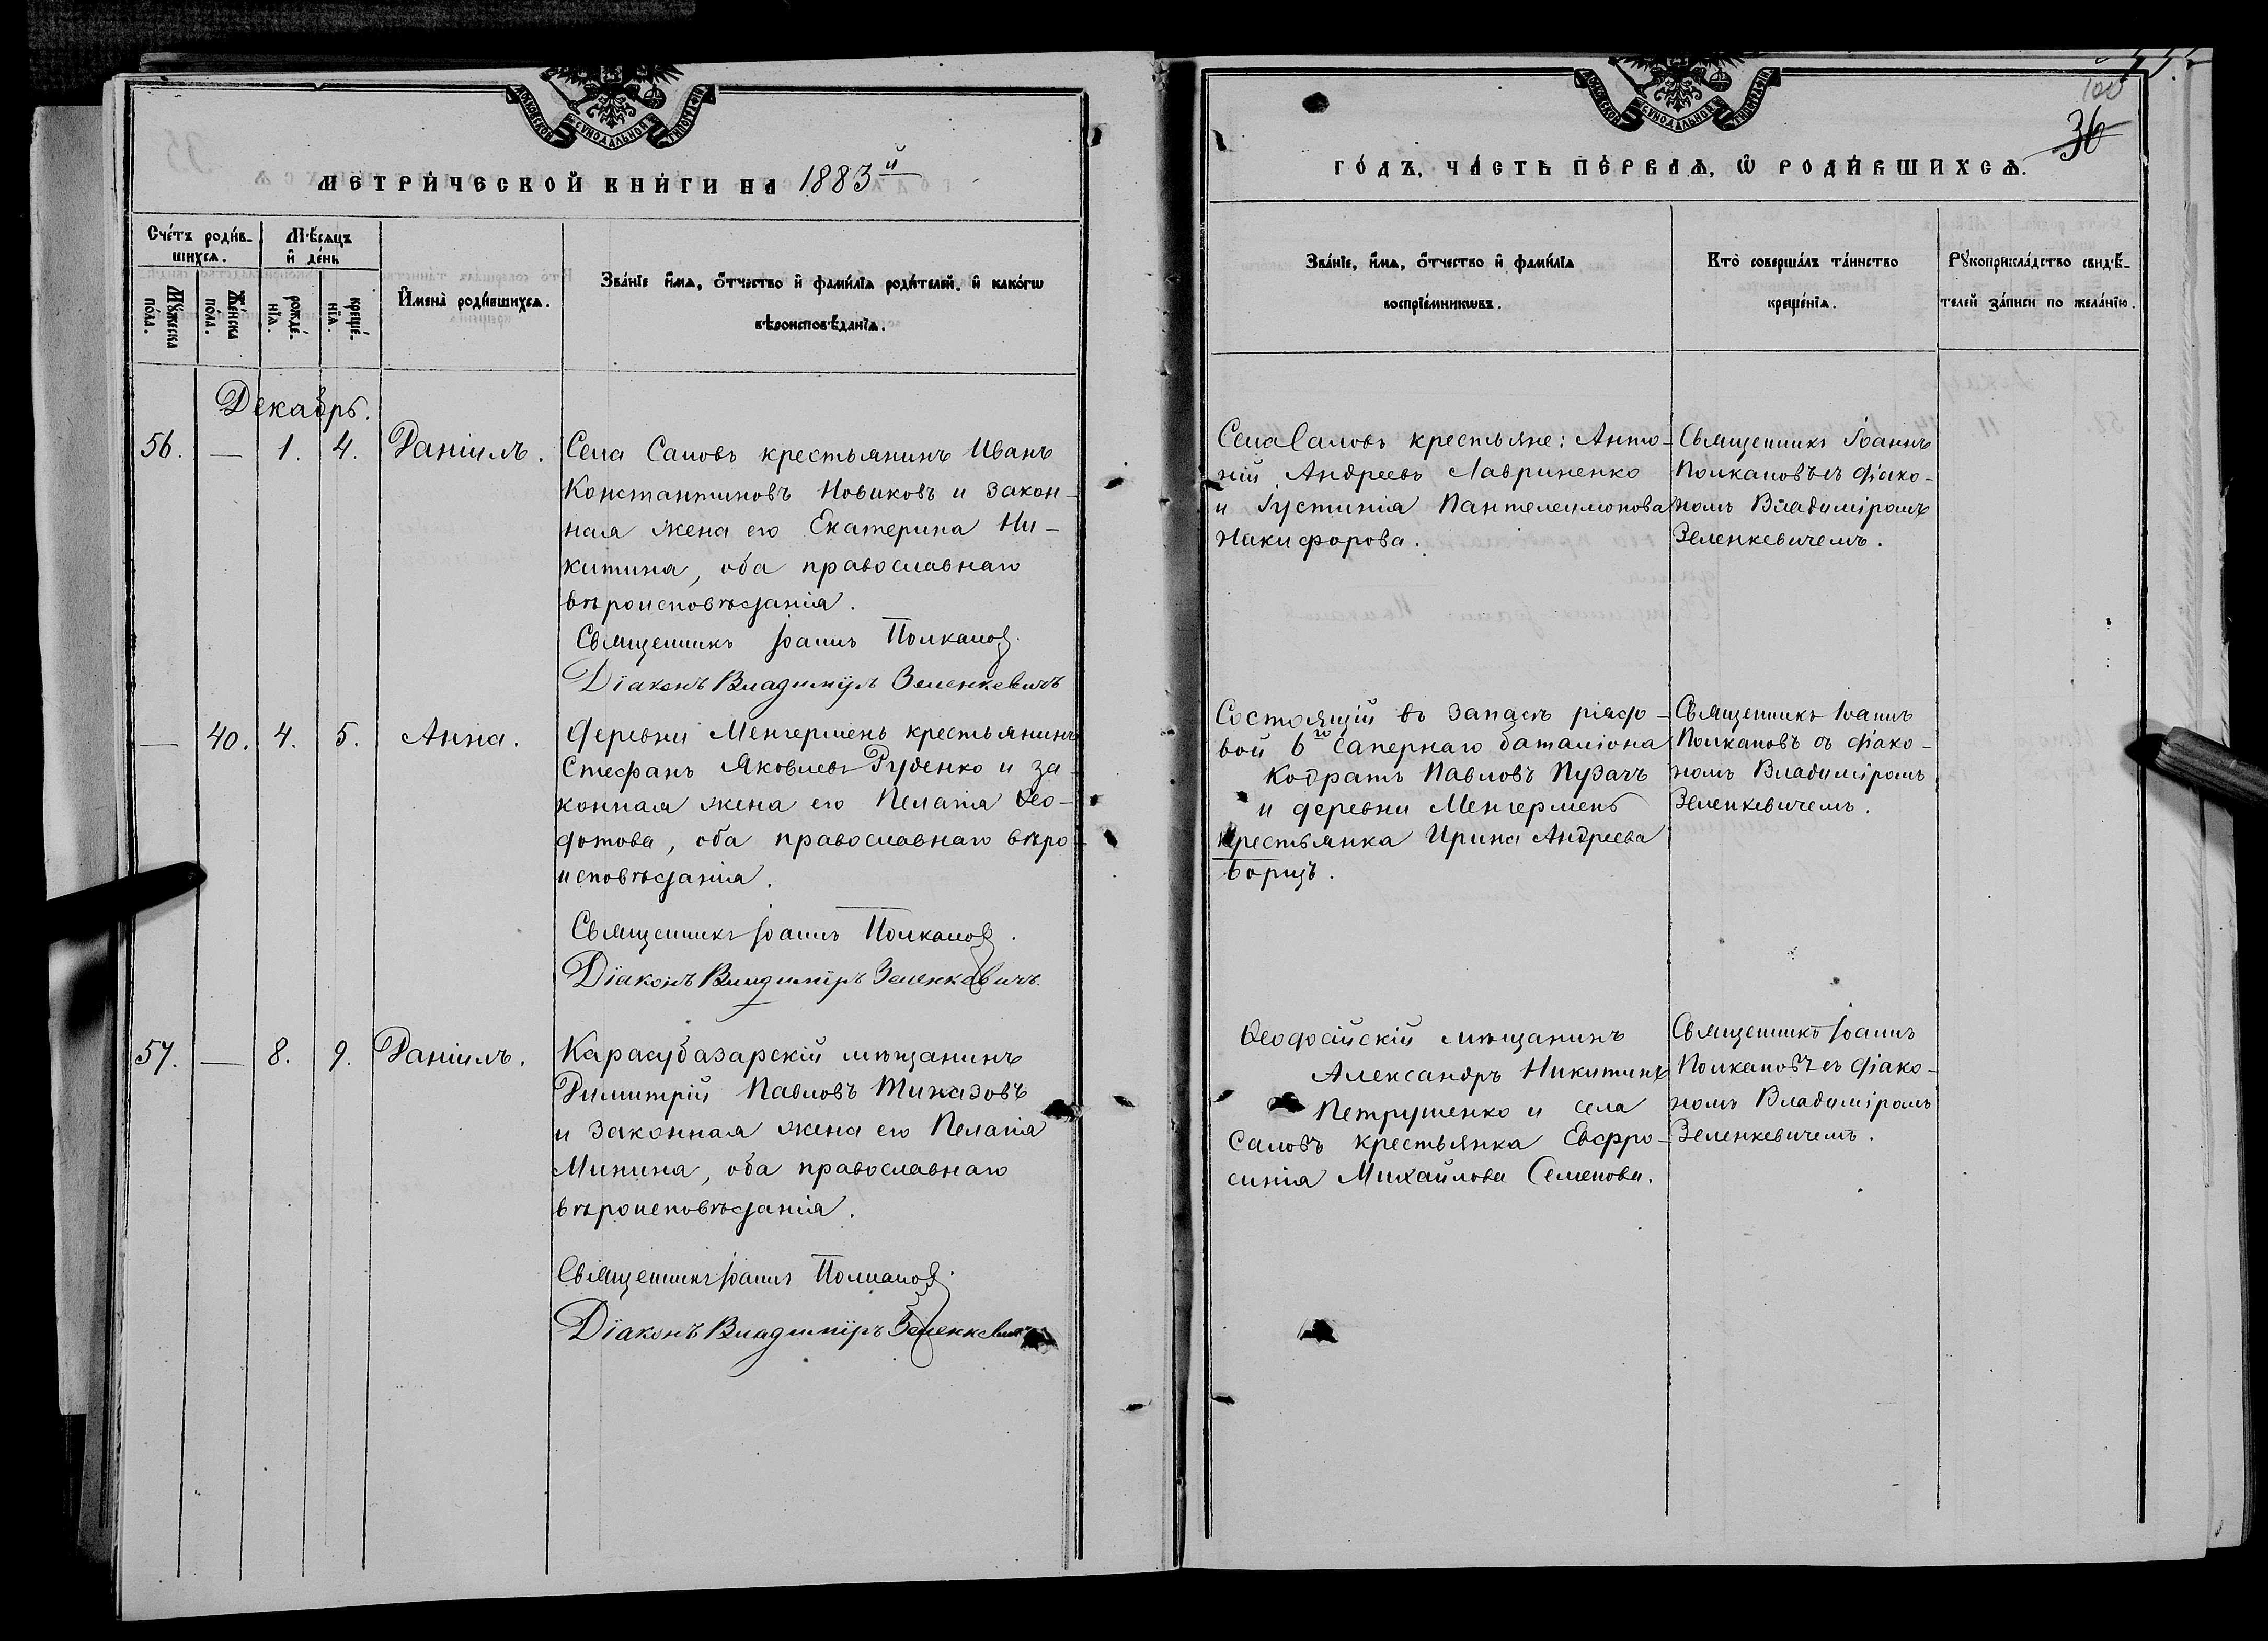 МОСКОВСКОЙ СУНОДАЛЬНОЙ ТИПОГРАФІИ
МЕТРИ́ЧЕСКОЙ КНИ́ГИ НА 1883 й
Сче́тъ роди́в-
шихся.
Мѣ́сяцъ
и де́нь
Му́жеска
по́ла.
Же́нска
по́ла.
рожде́-
нїя.
креще́-
нїя.
Имена̀ роди́вшихся.
Зва́нїе имя, о́тчество и фами́лїя роди́телей. и како́гѡ
вѣроисповѣ́данїя.
Декабрь.
56. — 1. 4. Даніилъ.
Села Саловъ крестьянинъ Иванъ
Константиновъ Новиковъ и закон-
ная жена его Екатерина Ни-
китина, оба православнаго
вѣроисповѣданія.
Священникъ Іоаннъ Полкановъ
Діаконъ Владиміръ Зеленкевичъ
— 40. 4. 5. Анна.
Деревни Менгерменъ крестьянинъ
Стефанъ Яковлевъ Руденко и за-
конная жена его Пелагія Ѳео-
дотова, оба православнаго вѣро
исповѣданія.
Священникъ Іоаннъ Полкановъ.
Діаконъ Владиміръ Зеленкевичъ.
57. — 8. 9. Даніилъ.
Карасубазарскій мѣщанинъ
Димитрій Павловъ Тиназовъ
и законная жена его Пелагія
Минина, оба православнаго
вѣроисповѣданія.
Священникъ Іоаннъ Полкановъ.
Діаконъ Владиміръ Зеленкевичъ
МОСКОВСКОЙ СУНОДАЛЬНОЙ ТИПОГРАФІИ
100
36
ГО́ДЪ, ЧА́СТЬ ПЕ́РВАЯ, Ѡ РОДИ́ВШИХСЯ.
Зва́нїе, имя, о́тчество и фами́лїя
воспрїе́мникѡвъ.
Кто̀ соверша́лъ та́инство
креще́нїя.
Рукоприкла́дство свидѣ́-
телей за́писи по жела́нїю.
Села Саловъ крестьяне: Анто-
ній Андреевъ Лавриненко
и Іустинія Пантелеимонова
Никифорова.
Священникъ Іоаннъ
Полкановъ съ діако-
номъ Владиміромъ
Зеленкевичемъ.
Состоящій въ запасѣ рядо-
вой 6го сапернаго баталіона
Кодратъ Павловъ Пузачъ
и деревни Менгерменъ
крестьянка Ирина Андреева
Борщъ.
Священникъ Іоаннъ
Полкановъ съ діако-
номъ Владиміромъ
Зеленкевичемъ.
Ѳеодосійскій мѣщанинъ
Александръ Никитинъ
Петрушенко и села
Саловъ крестьянка Евфро-
синія Михайлова Семенова.
Священникъ Іоаннъ
Полкановъ съ діако-
номъ Владиміромъ
Зеленкевичемъ.